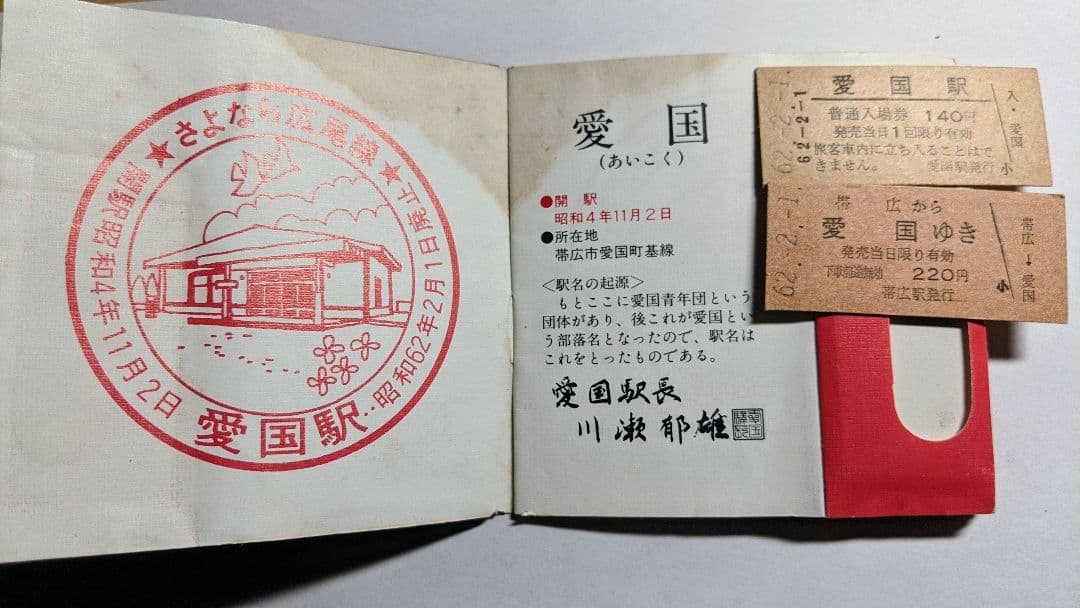 ★さよなら広尾線★
開駅昭和4年11月2日
昭和62年2月1日廃止
愛国駅
愛国
(あいこく)
●開駅
昭和4年11月2日
●所在地
帯広市愛国町基線
<駅名の起源>
もとここに愛国青年団という
団体があり、後これが愛国とい
う部落名となったので、駅名は
これをとったものである。
愛国駅長
川瀬郁雄
62-2-1
愛国駅
普通入場券 140円
発売当日1回限り有効
旅客車内に立ち入ることはで
きません。 愛国駅発行
入・愛国
小
62.-2.-1
帯広から
愛国ゆき
発売当日限り有効
下車前途無効 220円
帯広駅発行
帯広→愛国
小